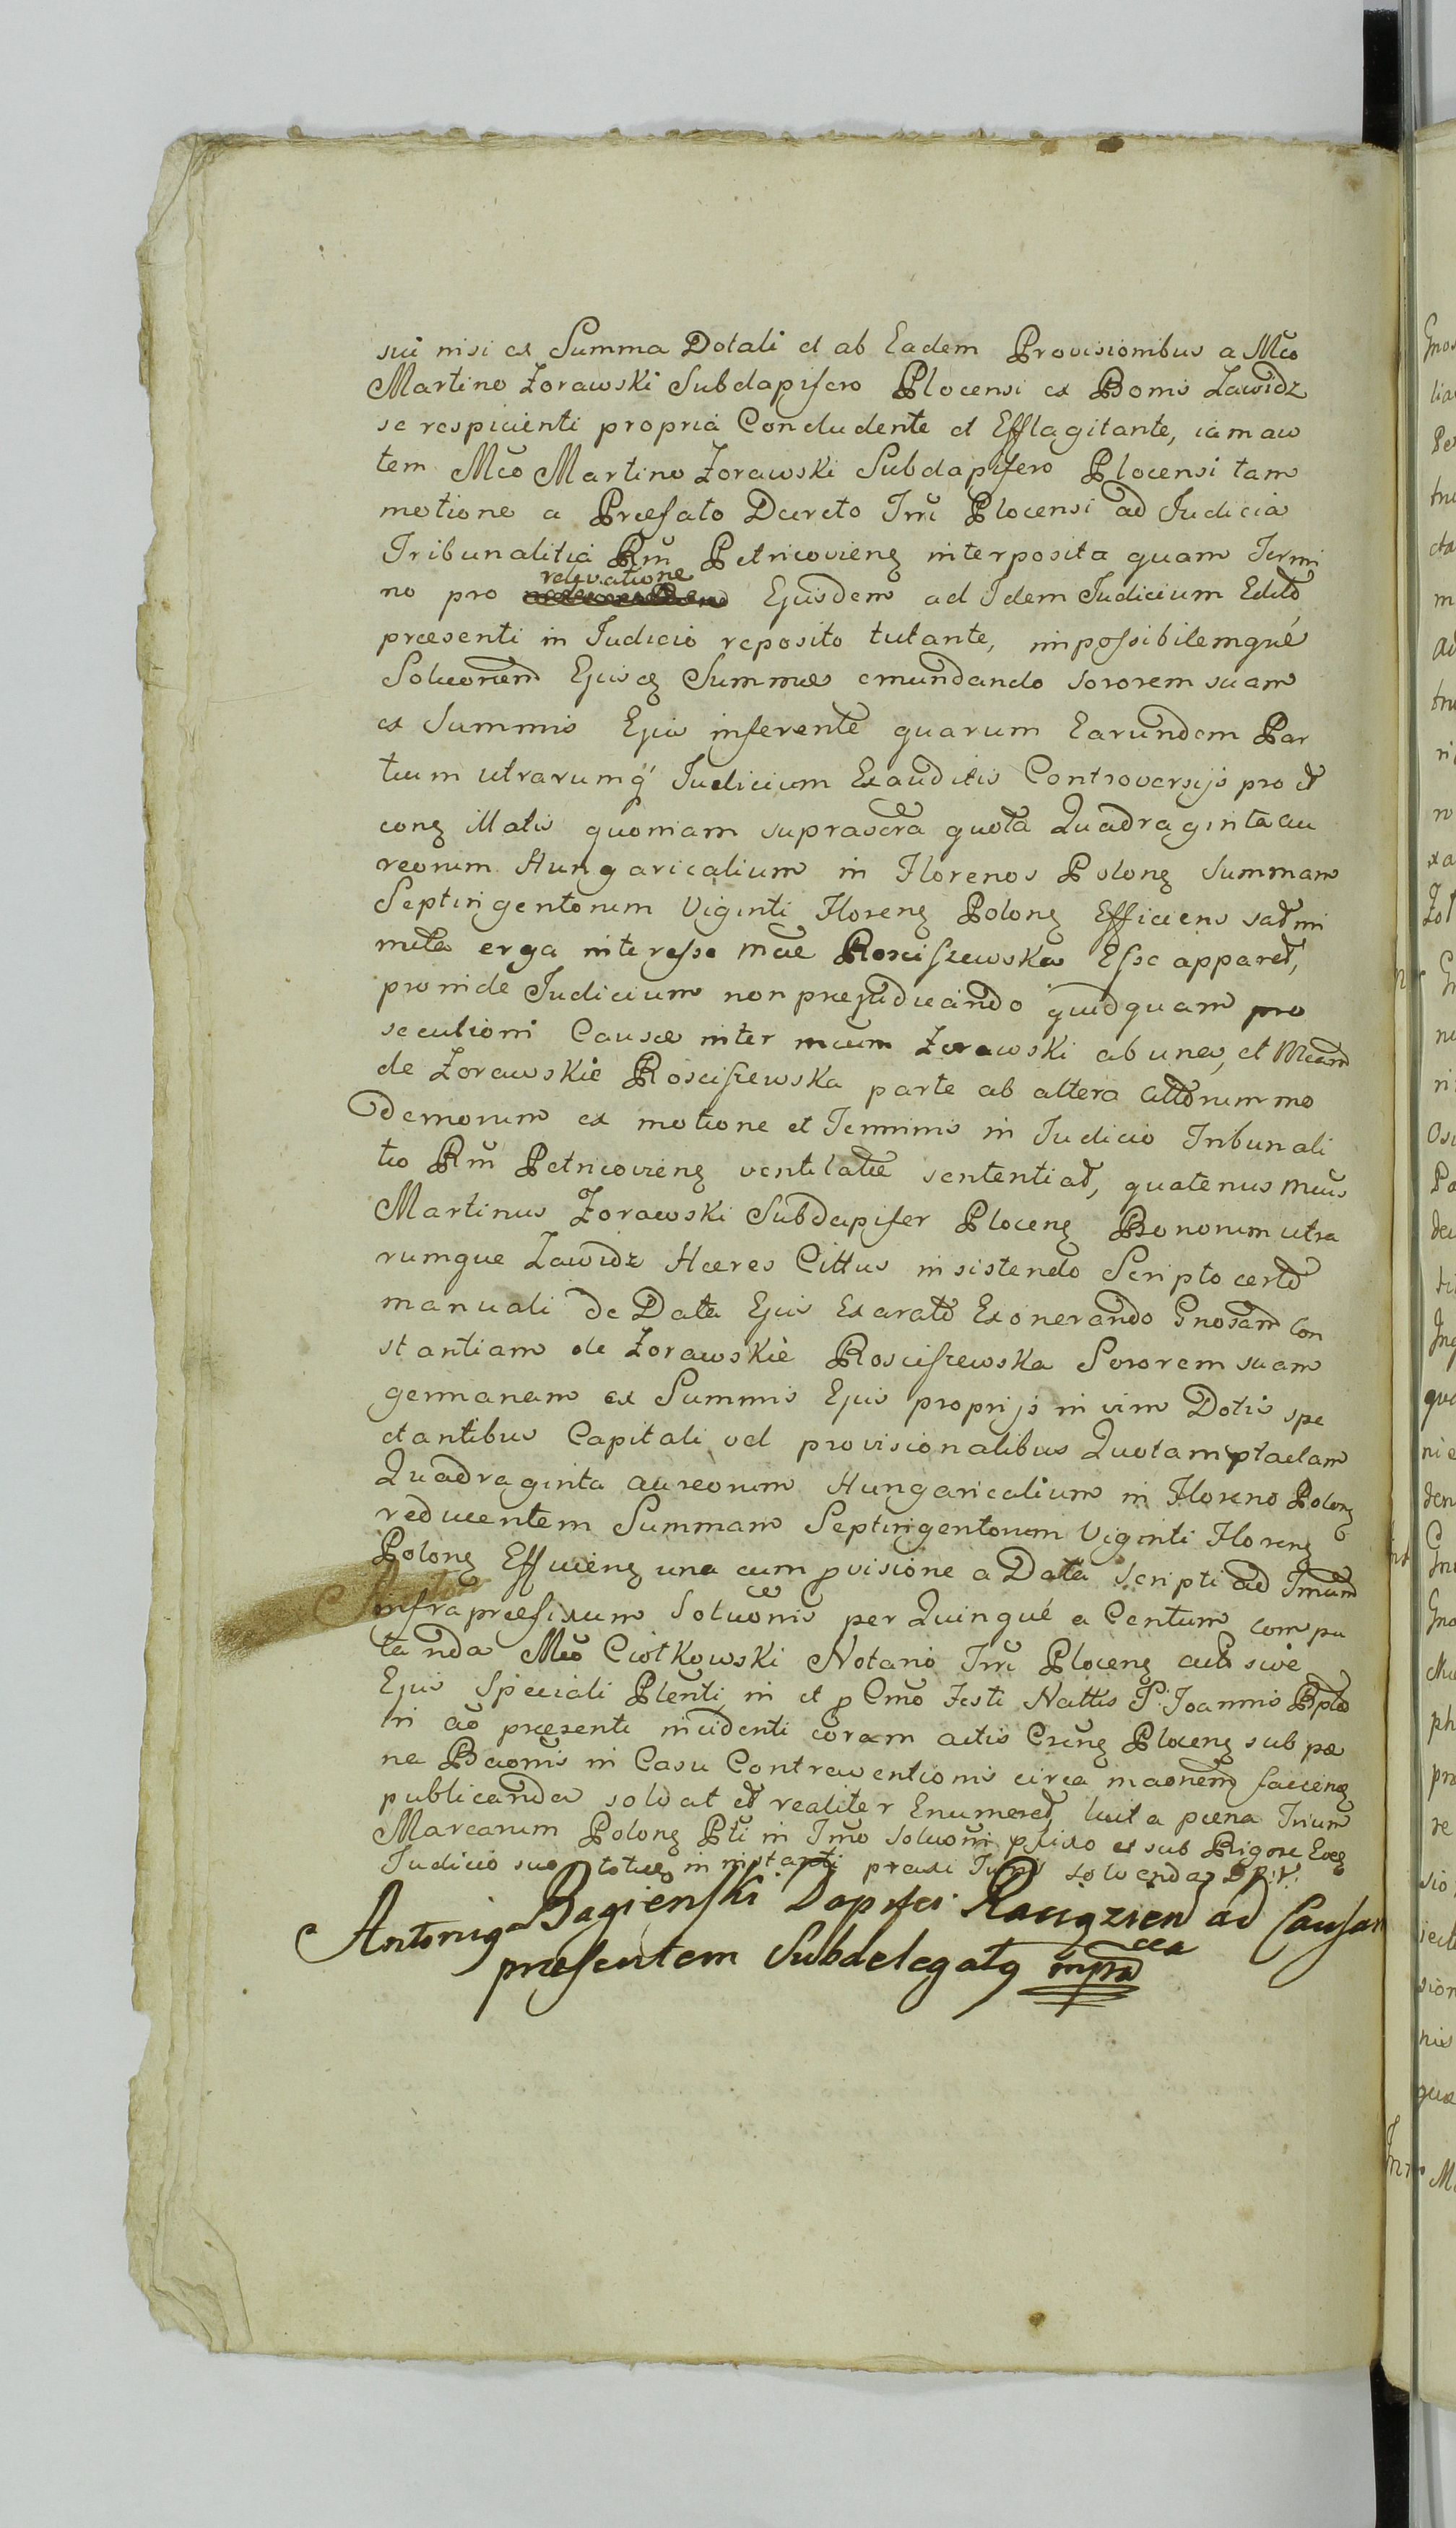 sui nisi ex Summa Dotali et ab Eadem Provisionibus a Mco
Martino Zorawski Subdapifero Plocensi ex Bonis Zawidz
se respicienti propria Concludente et Efflagitante, iam au
tem Mco Martino Zorawski Subdapifero Plocensi tam
motione a Præfato Decreto Trri Plocensi ad Iudicia
Tribunalitia Rni Petricovieng interposita quam Termi
no pro relevatione Ejusdem ad Idem Iudicium Edito
præsenti in Iudicio reposito tutante, impossibilemqué
Soluonem Ejusq Summæ emundando sororem suam
ex Summis Ejus inferente quarum Earundem Par
tium utrarumq Iudicium Exauditis Controversijs pro et
cong illatis quoniam suprascra quota Quadraginta au
reorum Hungaricalium in Florenos Polong Summam
Septingentorum Viginti Floreng Polong Efficiens
mita erga interesse Mcæ Rosciszewska Esse apparet,
proinde Iudicium non præjudicando quidquam pro
secutioni Causæ inter mcum Zorawski ab una, et Mcam
de Zorawskie Rosciszewska parte ab altera Attorum mo
dernorum ex motione et Terminis in Iudicio Tribunali
tio Rni Petricovieng ventilatæ sententiat, quatenus Mcus
Martinus Zorawski Subdapifer Ploceng Bonorum utra
rumque Zawidz Hæres Cittus insistendo Scripto certo
manuali de Data Ejus Exarato Exonerando Gnosam Con
stantiam de Zorawskiè Rosciszewska Sororem suam
germanam ex Summis Ejus proprijs in vim Dotis spe
ctantibus Capitali vel provisionalibus Quotam ptactam
Quadraginta aureorum Hungaricalium in Floreno Polong
reducentem Summam Septingentorum Viginti Floreng
Polong Efficieng una cum pvisione a Data Scripti ad Tmum
infra præfixum Soluonis per Quinqué a Centum compu
tanda Mco Ciotkowski Notario Trri Ploceng aut sive
Ejus Speciali Plenti in et p Cmo Festi Nattis S: Joannis Bptæ
in ao præsenti incidenti coram actis Ploceng sub pœ
na Baonis in Casu Contraventionis circa maonem facieng
publicanda solvat et realiter Enumeret, luita pœna Trium
Marcarum Polong Pti in Tmo Soluoni pfixo et sub Rigore
Iudicio suo toties in instanti prævi Iuris solvenda D:P:V:
Antonig Bagienski Dapifer Raugzien ad Causam
præsentem Subdelegatg mpria